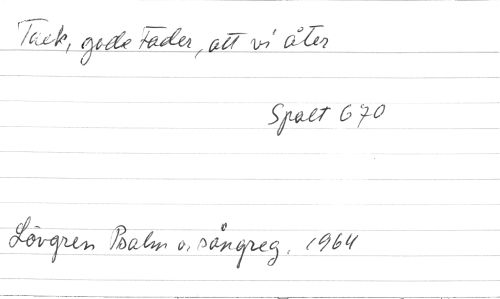 Tack, gode Fader, att vi åter
Spalt 670
Lövgren Psalm o. sångreg. 1964